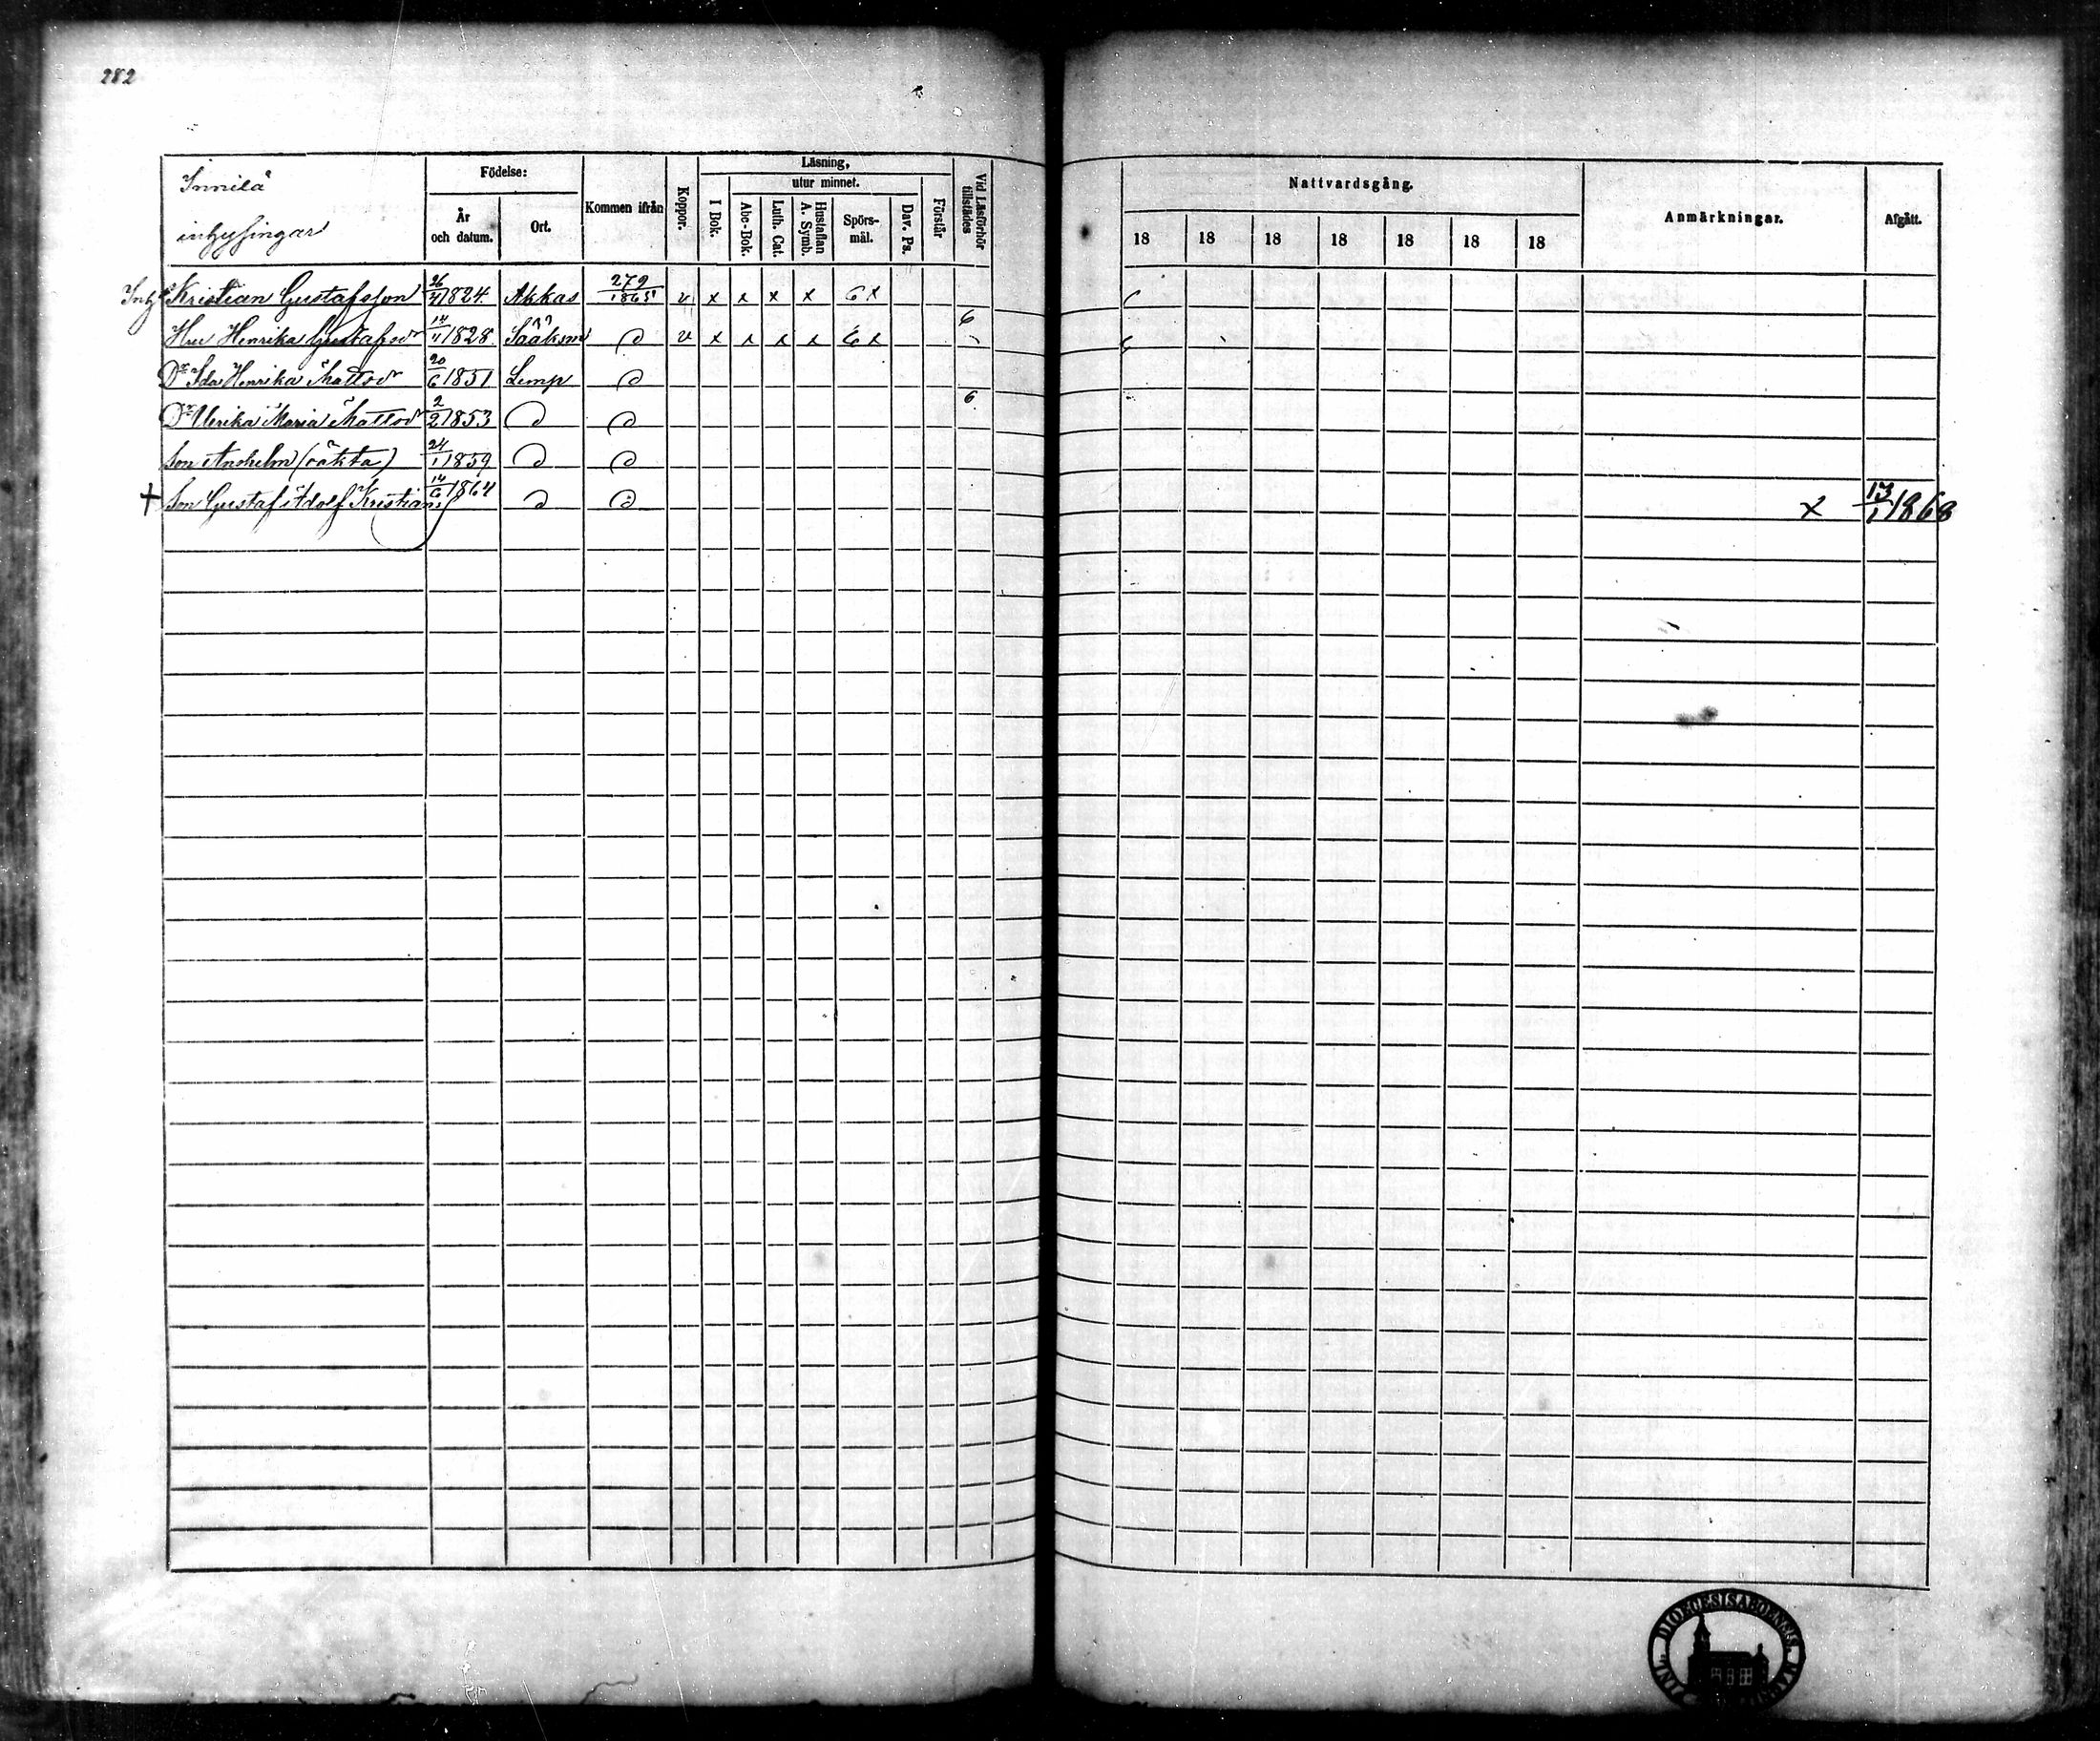 282
Innilä
inhysingar
Födelse:
År
och datum.
Ort.
Kommen ifrån
Koppor.
Läsning,
I Bok.
utur minnet.
Abc-Bok.
Luth. Cat.
Hustaflan
A. Symb.
Spörs-
mål.
Dav. Ps.
Förstår
Vid Läsförhör
tillstädes
Nattvardsgång.
18 18 18 18 18 18 18
Anmärkningar.
Afgått.
Inhys Kristian Gustafsson 26/4 1824. Akkas 279/1865 v x x x x 6 x
6
Hu Henrika Gustafsdr 14/11 1828 Sääksm D v x x x x 6 x
Dr Ida Henrika Mattsdr 20/6 1851 Lemp D
6
Dr Ulrika Maria Mattsdr 2/2 1853 D D
Son Anshelm (oäkta) 24/1 1859 D D
+ Son Gustaf Adolf Kristians 14/6 1864 D D x 13/1 1868
DIOECESIS ABOENSIS